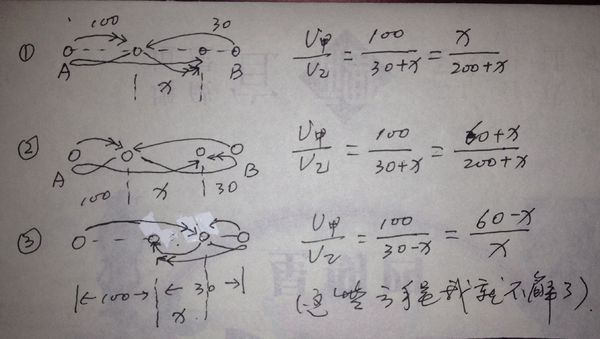 ① 100 30 A B x U甲/U乙 = 100/30+x = x/200+x
② A B 100 x 30 U甲/U乙 = 100/30+x = 60+x/200+x
③ |←100→|←30→| x U甲/U乙 = 100/30-x = 60-x/x
(这些方程我就不解了)